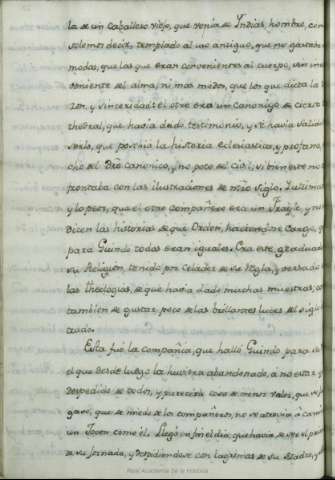 la de un Caballero viejo, que venia de Indias, hombre, con
solemos decir, templado al uso antiguo, que no gastaba
modas, que las que eran convenientes al cuerpo, y
al alma, ni mas modos, que los que dicta la
zon, y sinceridad: el otro era un Canonigo de cierta
thedral, que havia dado testimonio, y
que posehia la historia eclesiastica, y profana
cho del Dro Canonico, y no poco del Civil, si bien este no
frontaba con las ilustraciones de nrõ siglo, ultimam
y lo peor, que el otro compañero era un Frayle, y no
dicen las historias de que Orden, haciendose Cargo, q
para Guindo todas eran iguales. Era este, graduado
su Religion, tenido por Celador de su Regla, y versado
las theologias, de que havia dado muchas muestras; co
tambien de gustar poco de las brillantes luces del siglo
trado.
Esta fue la compañia, que halló Guindo para
el que desde luego la huviera abandonado, á no estar y
despedido de todos, y parecerle cosa de menos valer, que se ju
gase, que de miedo á los compañeros, no se atrevia á
un Joven como él. Llegó en fin el dia, que havia de ser el pr
de su Jornada, y despidiendose con lagrimas de su Madre, y
Real Academia de la Historia